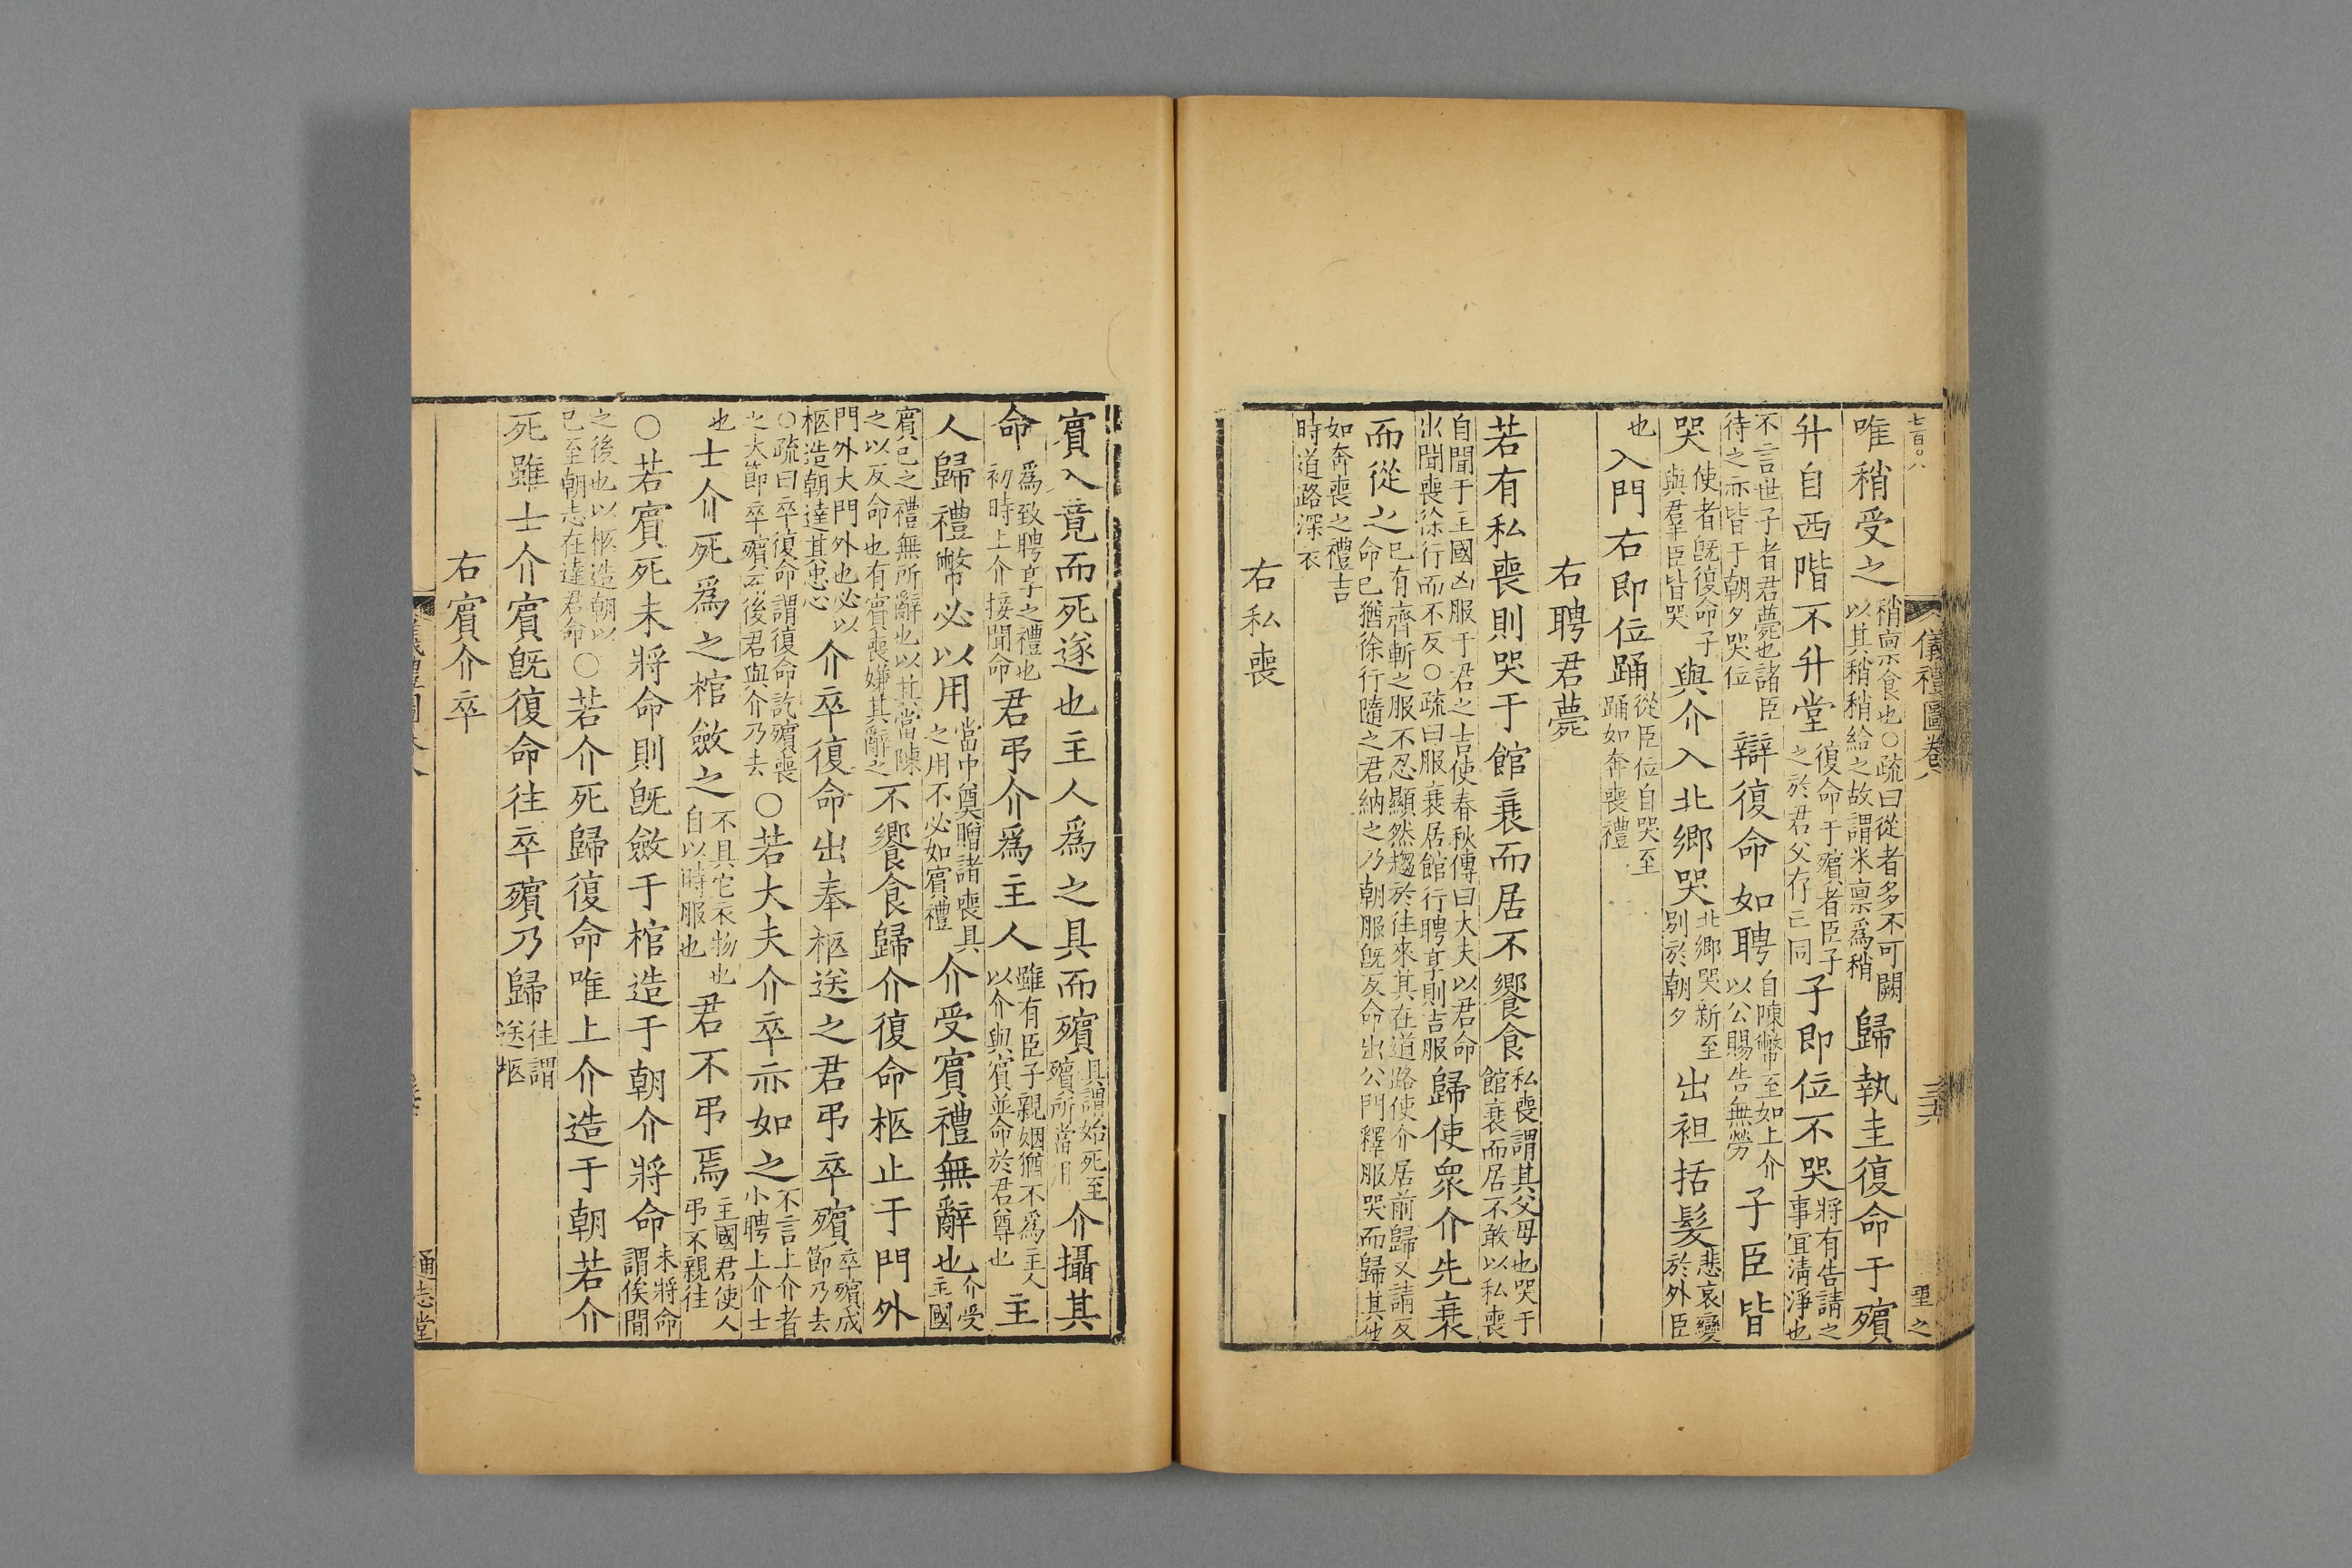 七百〇八
儀禮圖卷八
三六
聖之
唯稍受之稍稟食也○疏曰從者多不可闕以其稍稍給之故謂米稟爲稍歸執圭復命于殯
升自西階不升堂復命于殯者臣子之於君父存亡同子即位不哭將有告請之事宜清淨也
不言世子者君薨也諸臣待之亦皆于朝夕哭位辯復命如聘自陳幣至如上介以公賜告無勞子臣皆
哭使者旣復命子與羣臣皆哭與介入北鄉哭北鄉哭新至别於朝夕出袒括髮悲哀變於外臣
也入門右即位踊從臣位自哭至踊如奔喪禮
右聘君薨
若有私喪則哭于館衰而居不饗食私喪謂其父母也哭于館衰而居不敢以私喪
自聞于主國凶服于君之吉使春秋傳曰大夫以君命出聞喪徐行而不反○疏曰服衰居館行聘享則吉服歸使衆介先衰
而從之巳有齊斬之服不忍顯然趨於往來其在道路使介居前歸又請反命巳猶徐行隨之君納之乃朝服旣反命出公門釋服哭而歸其他
如奔喪之禮吉時道路深衣
右私喪
賓入竟而死遂也主人爲之具而殯具謂始死至殯所當用介攝其
命爲致聘享之禮也初時上介接聞命君弔介爲主人雖有臣子親姻猶不爲主人以介與賓並命於君尊也主
人歸禮幣必以用當中奠贈諸喪具之用不必如賓禮介受賓禮無辭也介受主國
賓巳之禮無所辭也以其當陳之以反命也有賓喪嫌其辭之不饗食歸介復命柩止于門外
門外大門外也必以柩造朝達其忠心介卒復命出奉柩送之君弔卒殯卒殯成節乃去
○疏曰卒復命謂復命訖殯喪之大節卒殯云後君與介乃去○若大夫介卒亦如之不言上介者小聘上介士
也士介死爲之棺斂之不具它衣物也自以時服也君不弔焉主國君使人弔不親往
○若賓死未將命則旣斂于棺造于朝介將命未將命謂俟閒
之後也以柩造朝以巳至朝志在達君命○若介死歸復命唯上介造于朝若介
死雖士介賓旣復命往卒殯乃歸往謂送柩
右賓介卒
通志堂